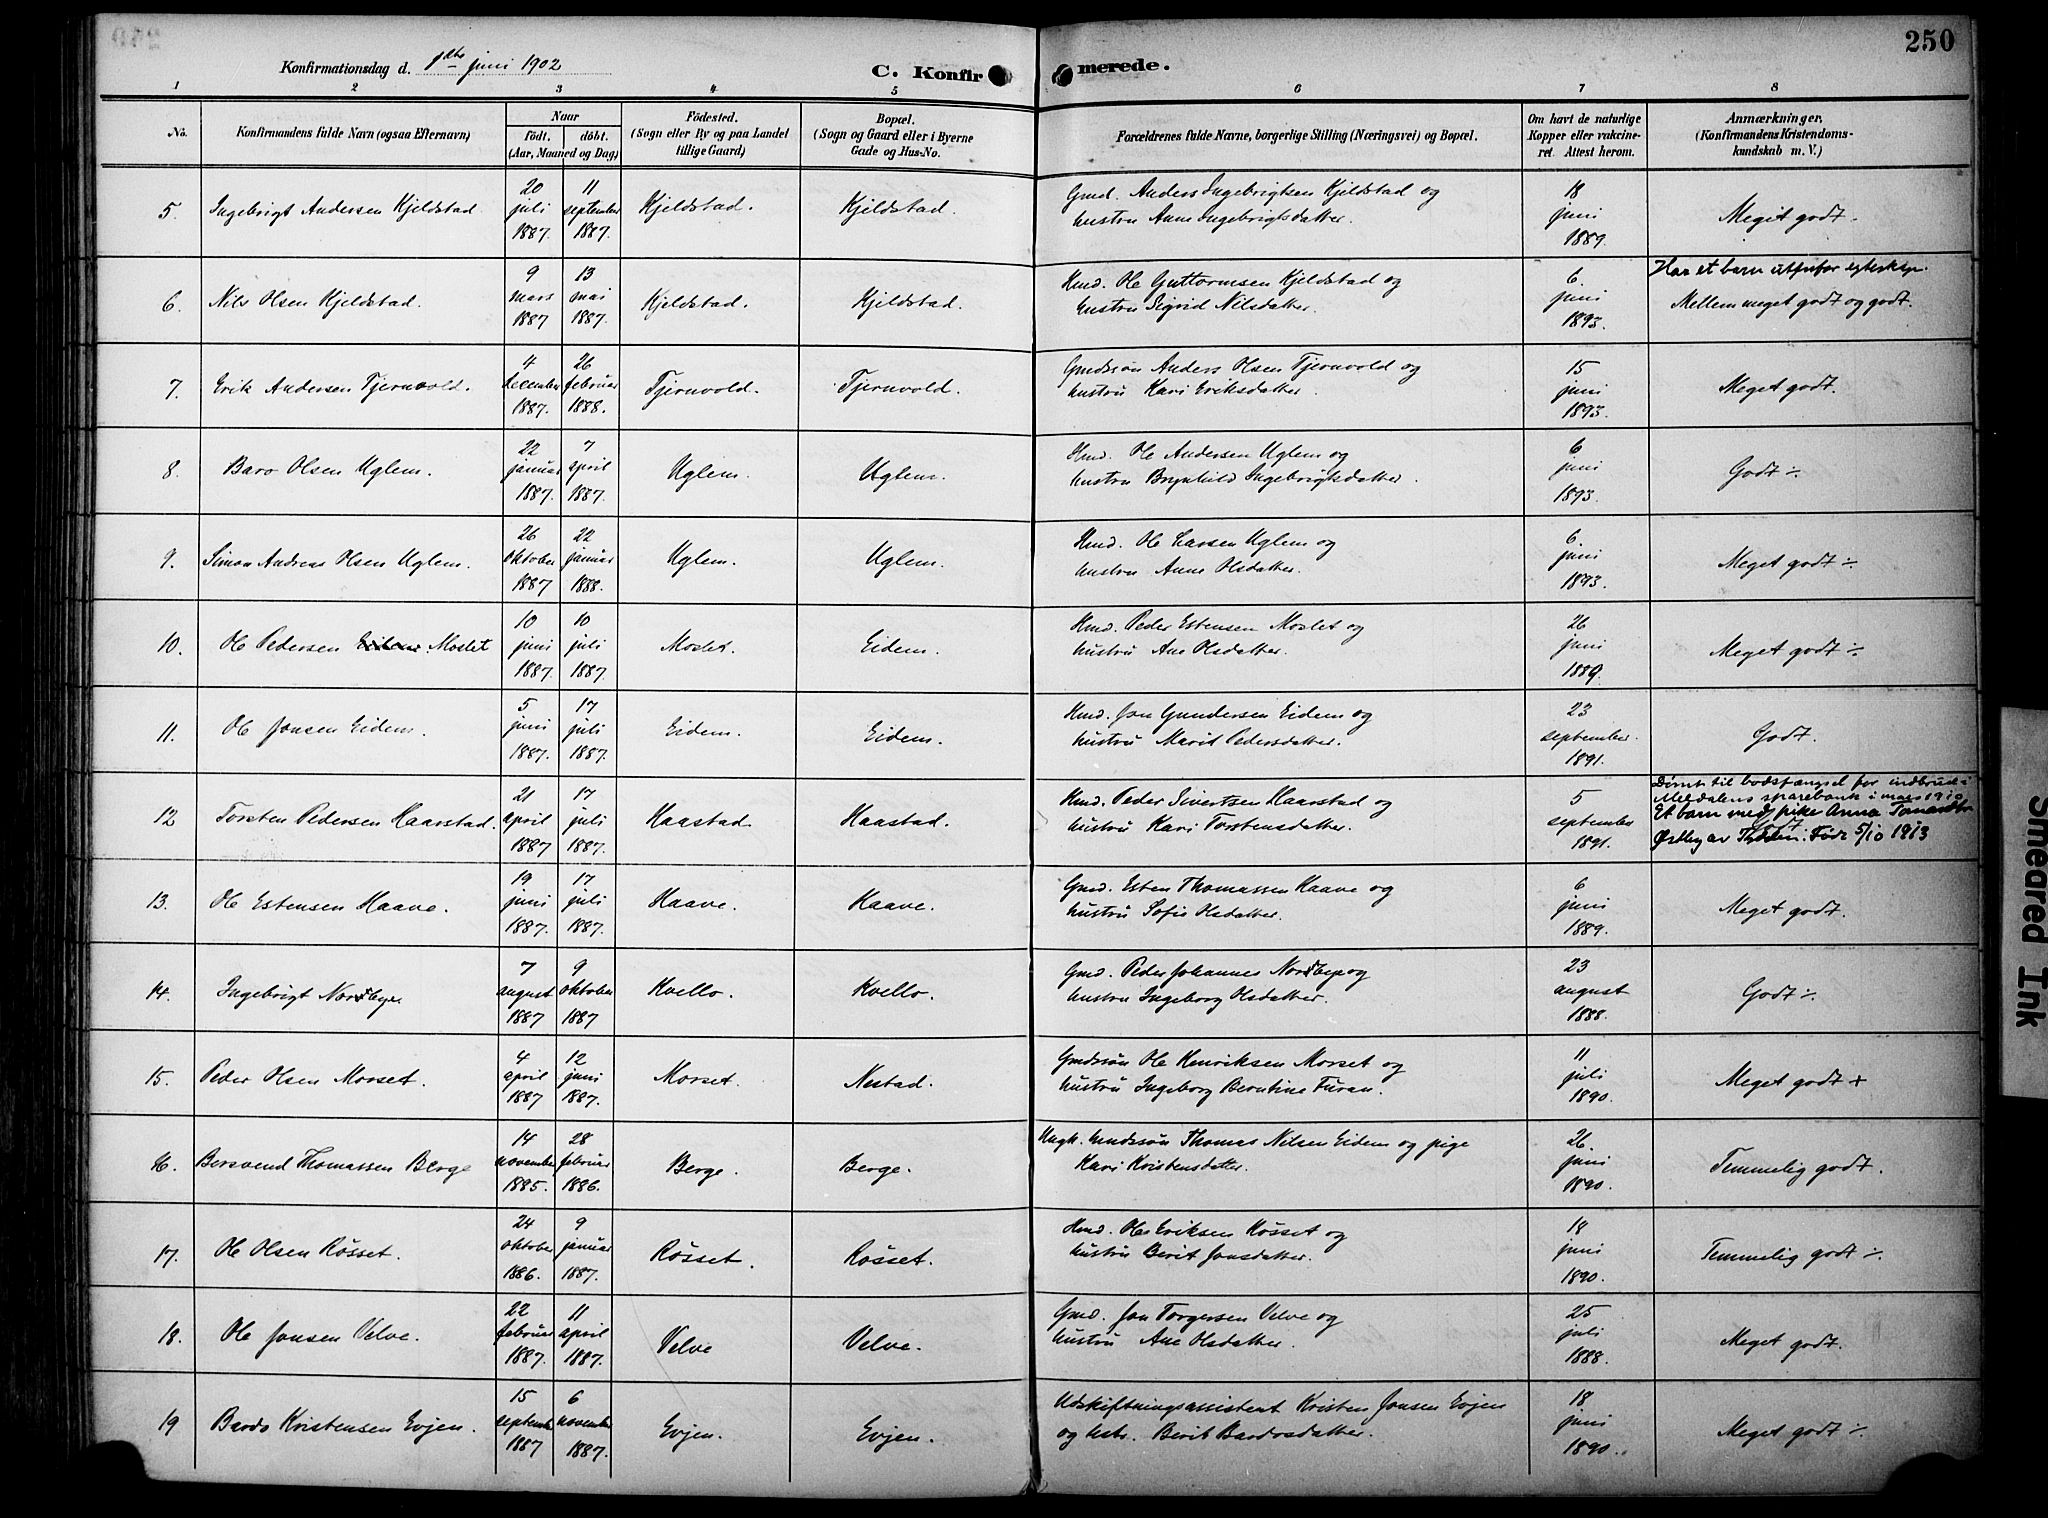 250
Konfirmationsdag d. 1ste juni 1902
C. Konfirmerede.
1 2 3 4 5 6 7 8
No. Konfirmandens fulde Navn (ogsaa Efternavn) Naar født. døbt. (Aar, Maaned og Dag) Fødested. (Sogn eller By og paa Landet tillige Gaard) Bopæl. (Sogn og Gaard eller i Byerne Gade og Hus-No. Forældrenes fulde Navne, borgerlige Stilling (Næringsvei) og Bopæl. Om havt de naturlige Kopper eller vakcineret. Attest herom. Anmærkninger. (Konfirmandens Kristendomskundskab m. V.)
5. Ingebrigt Andersen Kjeldstad 20 juli 1887. 11 september 1887. Kjeldstad. Kjeldstad. Gmd. Anders Ingebrigtsen Kjeldstad og hustru Ane Ingebrigtsdatter. 18 juni 1889. Meget godt.
6. Nils Olsen Kjeldstad. 9 mars 1887 13 mai 1887. Kjeldstad. Kjeldstad. Hmd. Ole Guttormsen Kjeldstad og hustru Sigrid Nilsdatter. 6. juni 1893. Har et barn utenfor egteskap. Mellem meget godt og godt.
7. Erik Andersen Tjernvold. 4 december 1887. 26 februar 1888. Tjernvold. Tjernvold. Gmdssøn Anders Olsen Tjernvold og hustru Kari Eriksdatter. 15 juni 1893. Meget godt.
8. Baro Olsen Uglem. 22 januar 1887. 7 april 1887. Uglem. Uglem. Hmd. Ole Andersen Uglem og hustru Brynhild Ingebrigtsdatter. 6 juni 1893. Godt ÷
9. Simon Andreas Olsen Uglem. 26 oktober 1887 22 januar 1888. Uglem. Uglem. Hmd. Ole Larsen Uglem og hustru Anne Olsdatter. 6. juni 1893. Meget godt ÷
10. Ole Pedersen Eidem. Moslet 10 juni 1887. 10 juli 1887. Moslet. Eidem. Hmd. Peder Estensen Moslet og hustru Ane Olsdatter. 26 juni 1889. Meget godt ÷
11. Ole Jonsen Eidem. 5 juni 1887. 17 juli 1887. Eidem. Eidem. Hmd. Jon Gundersen Eidem og hustru Marit Pedersdatter. 23 september. 1891. Godt.
12 Torsten Pedersen Haarstad. 21 april 1887 17 juli 1887. Haastad Haastad. Hmd. Peder Sivertsen Haarstad og hustru Kari Torstensdatter. 5 september 1891. Dømt til bodsfængsel for indbrud i Meldalens sparebank i mars 1910 Et barn med pike Anna Østby av Født 5/10 1913
13. Ole Estensen Haave. 19 juni 1887. 17 juli 1887. Haave. Haave. Gmd. Esten Thomassen Haave og hustru Sofie Olsdatter. 6 juni 1889. Meget godt.
14. Ingebrigt Nordbye 7 august 1887 9 oktober 1887 Kvello. Kvello. Gmd. Peder Johannes Nordbye og hustru Ingeborg Olsdatter. 23 august 1888. Godt ÷
15. Peder Olsen Morset. 4 april 1887 12 juni 1887. Morset. Nestad. Gmdssøn Ole Henriksen Morset og hustru Ingeborg Berntine Furan. 11 juli 1890. Meget godt +
16. Borsvend Thomassen Berge 14 november 1885. 28 februar 1886. Berge. Berge. Ungk. Gmdssøn Thomas Nilsen Eidem og pige Kari Kristensdatter. 26 juni 1890. Temmelig godt.
17. Ole Olsen Røsset. 24 oktober 1886. 9 januar 1887. Røsset. Røsset. Hmd. Ole Eriksen Røsset og hustru Berit Jonsdatter. 18 juni 1890. Temmelig godt ÷
18. Ole Jonsen Velve. 22 februar 1887. 11 april 1887. Velve Velve. Gmd. Jon Torgersen Velve og hustru Ane Olsdatter. 25 juli 1888. Meget godt.
19 Bardo Kristensen Evjen. 15 september 1887 6 november 1887. Evjen. Evjen. Udskiftningsassistent Kristen Jonsen Evjen og hstr. Berit Bardosdatter. 18 juni 1890. Meget godt ÷
Smeared Ink